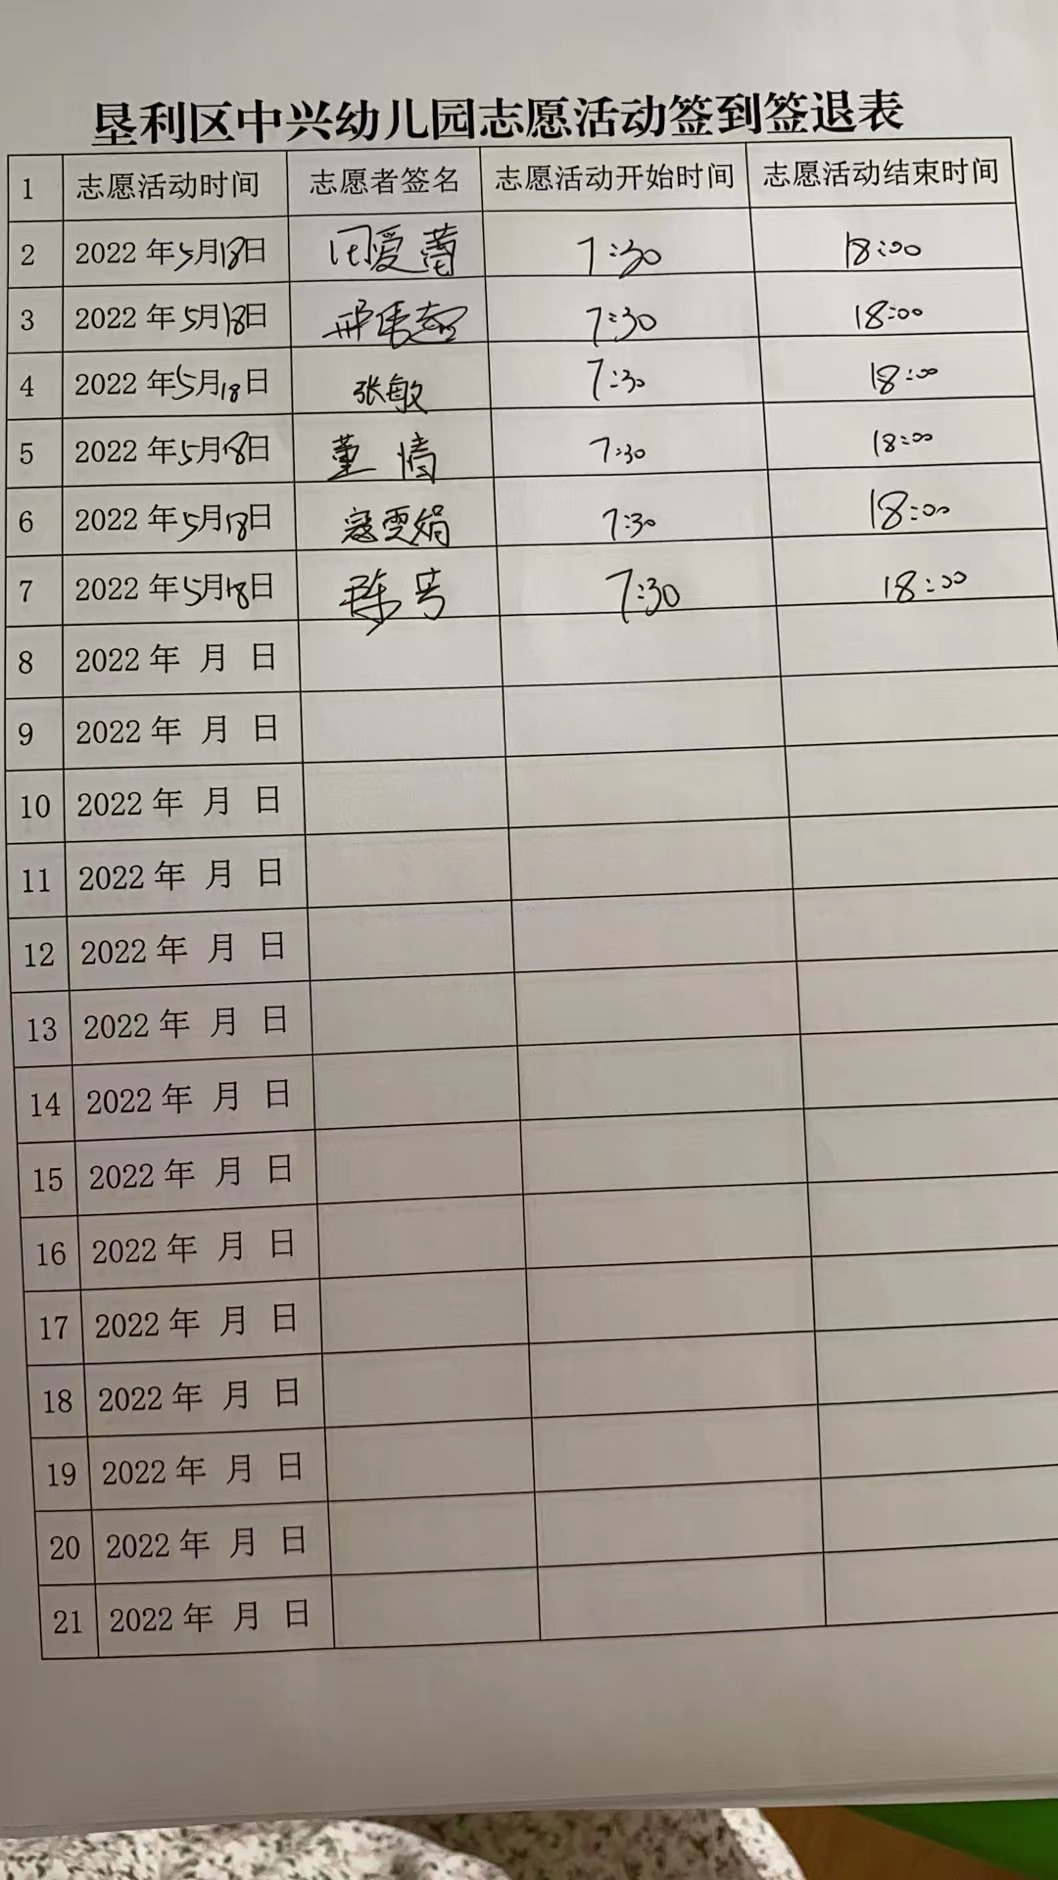 垦利区中兴幼儿园志愿活动签到签退表
1 志愿活动时间 志愿者签名 志愿活动开始时间 志愿活动结束时间
2 2022年5月18日 闫爱蕾 7:30 18:00
3 2022年5月18日 7:30 18:00
4 2022年5月18日 张敏 7:30 18:00
5 2022年5月18日 董情 7:30 18:00
6 2022年5月18日 寇雯娟 7:30 18:00
7 2022年5月18日 陈芳 7:30 18:00
8 2022年 月 日
9 2022年 月 日
10 2022年 月 日
11 2022年 月 日
12 2022年 月 日
13 2022年 月 日
14 2022年 月 日
15 2022年 月 日
16 2022年 月 日
17 2022年 月 日
18 2022年 月 日
19 2022年 月 日
20 2022年 月 日
21 2022年 月 日